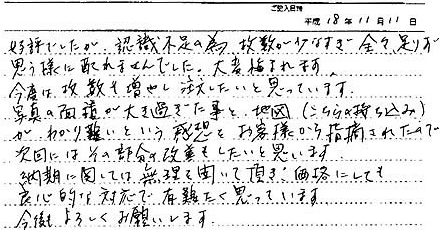 ご記入日時
平成 18 年 11 月 11 日
好評でしたが、認識不足の為、枚数が少なすぎ全々足りず
思う様に配れませんでした。大変悔まれます。
今度は枚数を増やし注文したいと思っています。
写真の面積が大き過ぎた事と、地図(こちらの持ち込み)
がわかり難いという感想をお客様から指摘されたので
次回にはその部分の改善をしたいと思います。
納期に関しては無理を聞いて頂き、価格にしても
良心的な対応で有難たく思っています。
今後もよろしくお願いします。